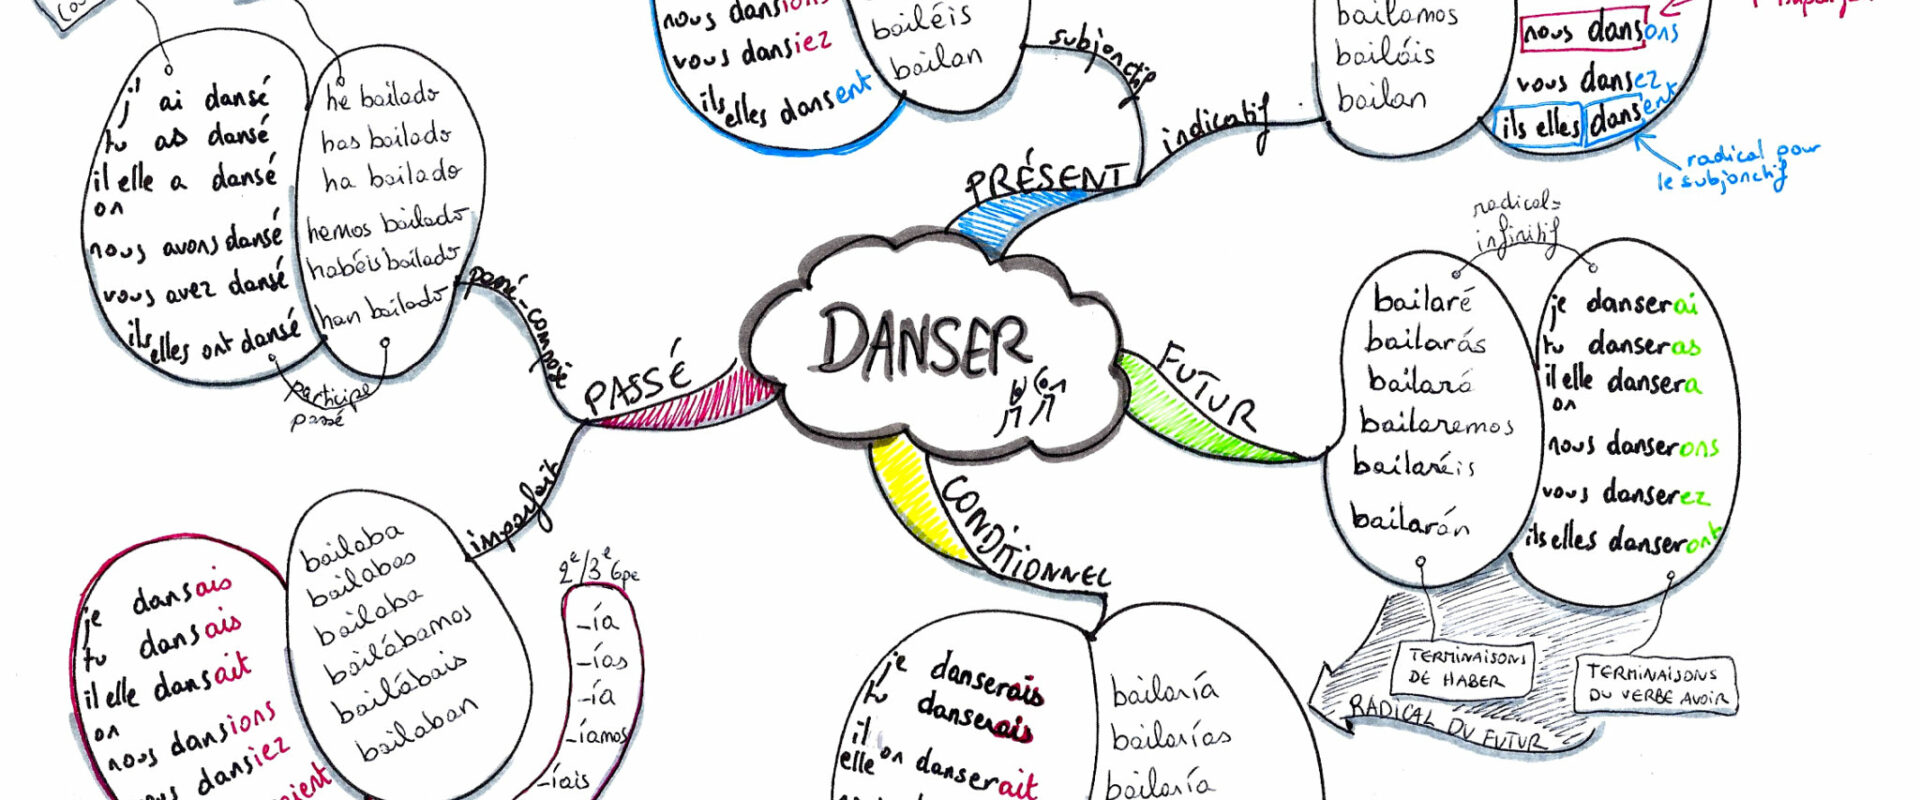 j'ai dansé
tu as dansé
il elle a dansé
on
nous avons dansé
vous avez dansé
ils
elles ont dansé
he bailado
has bailado
ha bailado
hemos bailado
habéis bailado
han bailado
participe
passé
passé-composé
PASSÉ
imparfait
je dansais
tu dansais
il elle dansait
on
nous dansions
vous dansiez
bailaba
bailabas
bailaba
bailábamos
bailábais
bailaban
2e/3e Gpe
-ía
-ías
-ía
-íamos
-íais
nous dansions
vous dansiez
ils
elles dansent
bailéis
bailan
subjonctif
PRÉSENT
indicatif
bailamos
bailáis
bailan
nous dansons
vous dansez
ils elles dansent
radical pour
le subjonctif
DANSER
FUTUR
radical=
infinitif
bailaré
bailarás
bailará
bailaremos
bailaréis
bailarán
je danserai
tu danseras
il elle dansera
on
nous danserons
vous danserez
ils elles danseront
TERMINAISONS
DE HABER
TERMINAISONS
DU VERBE AVOIR
RADICAL DU FUTUR
CONDITIONNEL
je danserais
tu danserais
il
elle on danserait
bailaría
bailarías
bailaría